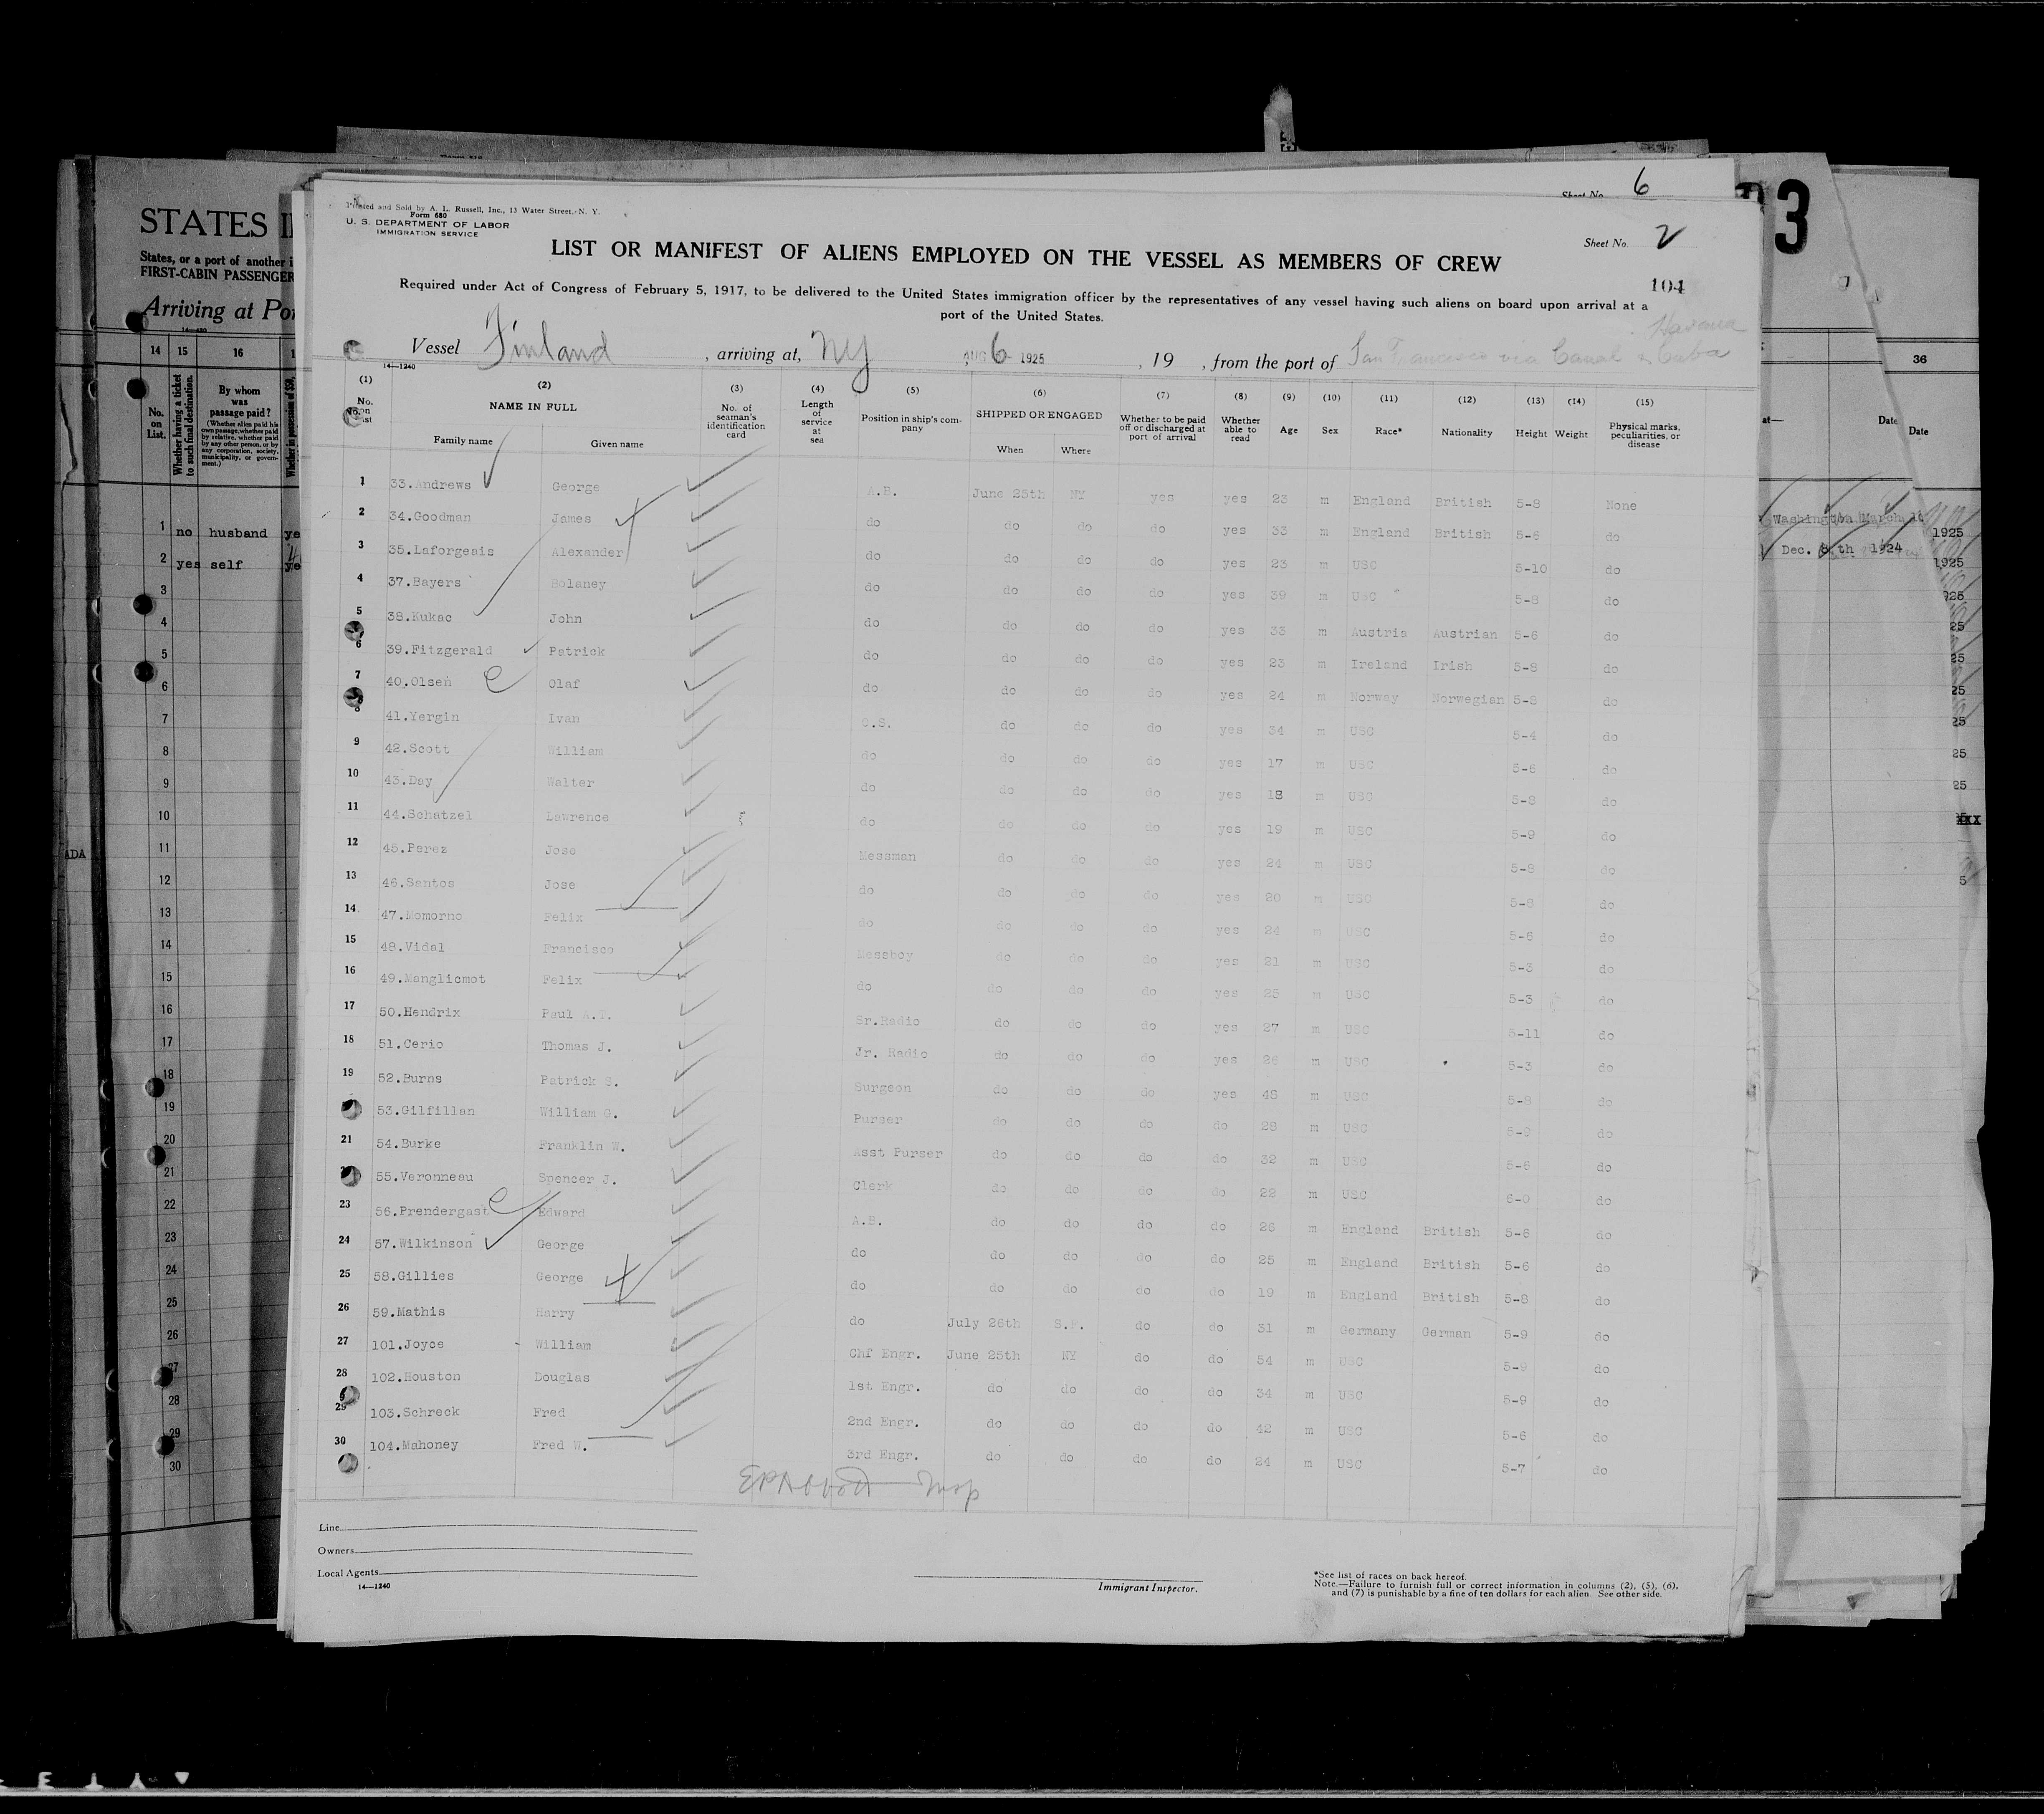 Sheet No. 6
Printed and Sold by A. L. Russell, Inc., 13 Water Street, N. Y.
Form 680
U. S. DEPARTMENT OF LABOR
IMMIGRATION SERVICE
Sheet No. 2
LIST OR MANIFEST OF ALIENS EMPLOYED ON THE VESSEL AS MEMBERS OF CREW
104
Required under Act of Congress of February 5, 1917, to be delivered to the United States immigration officer by the representatives of any vessel having such aliens on board upon arrival at a
port of the United States.
Havana
Vessel Finland, arriving at, NY AUG 6 1925, 19 , from the port of San Francisco via Canal & Cuba
14—1240
(1) No. on list (2) NAME IN FULL Family name Given name (3) No. of seaman's identification card (4) Length of service at sea (5) Position in ship's company (6) SHIPPED OR ENGAGED When Where (7) Whether to be paid off or discharged at port of arrival (8) Whether able to read (9) Age (10) Sex (11) Race* (12) Nationality (13) Height (14) Weight (15) Physical marks, peculiarities, or disease
1 33.Andrews George A.B. June 25th NY yes yes 23 m England British 5-8 None
2 34.Goodman James do do do do yes 33 m England British 5-6 do
3 35.Laforgeais Alexander do do do do yes 23 m USC 5-10 do
4 37.Bayers Bolaney do do do do yes 39 m USC 5-8 do
5 38.Kukac John do do do do yes 33 m Austria Austrian 5-6 do
6 39.Fitzgerald Patrick do do do do yes 23 m Ireland Irish 5-8 do
7 40.Olsen Olaf do do do do yes 24 m Norway Norwegian 5-8 do
8 41.Yergin Ivan O.S. do do do yes 34 m USC 5-4 do
9 42.Scott William do do do do yes 17 m USC 5-6 do
10 43.Day Walter do do do do yes 18 m USC 5-8 do
11 44.Schatzel Lawrence do do do do yes 19 m USC 5-9 do
12 45.Perez Jose Messman do do do yes 24 m USC 5-8 do
13 46.Santos Jose do do do do yes 20 m USC 5-8 do
14 47.Momorno Felix do do do do yes 24 m USC 5-6 do
15 48.Vidal Francisco Messboy do do do yes 21 m USC 5-3 do
16 49.Manglicmot Felix do do do do yes 25 m USC 5-3 do
17 50.Hendrix Paul A.T. Sr.Radio do do do yes 27 m USC 5-11 do
18 51.Cerio Thomas J. Jr. Radio do do do yes 26 m USC 5-3 do
19 52.Burns Patrick S. Surgeon do do do yes 48 m USC 5-8 do
53.Gilfillan William G. Purser do do do do 28 m USC 5-9 do
21 54.Burke Franklin W. Asst Purser do do do do 32 m USC 5-6 do
55.Veronneau Spencer J. Clerk do do do do 22 m USC 6-0 do
23 56.Prendergast Edward A.B. do do do do 26 m England British 5-6 do
24 57.Wilkinson George do do do do do 25 m England British 5-6 do
25 58.Gillies George do do do do do 19 m England British 5-8 do
26 59.Mathis Harry do July 26th S.F. do do 31 m Germany German 5-9 do
27 101.Joyce William Chf Engr. June 25th NY do do 54 m USC 5-9 do
28 102.Houston Douglas 1st Engr. do do do do 34 m USC 5-9 do
29 103.Schreck Fred 2nd Engr. do do do do 42 m USC 5-6 do
30 104.Mahoney Fred W. 3rd Engr. do do do do 24 m USC 5-7 do
Line
Owners
Local Agents
14—1240
Immigrant Inspector.
*See list of races on back hereof.
Note.—Failure to furnish full or correct information in columns (2), (5), (6),
and (7) is punishable by a fine of ten dollars for each alien. See other side.
STATES
States, or a port of another
FIRST-CABIN PASSENGER
Arriving at
14 15 16
No. on List. Whether having a ticket to such final destination. By whom was passage paid? (Whether alien paid his own passage, whether paid by relative, whether paid by any other person, or by any corporation, society, municipality, or government.)
1 no husband
2 yes self
3
4
5
6
7
8
9
10
11
12
13
14
15
16
17
18
19
20
21
22
23
24
25
26
27
28
29
30
3
36
Date
Date
Washington March
1925
Dec. 8 th 1924
1925